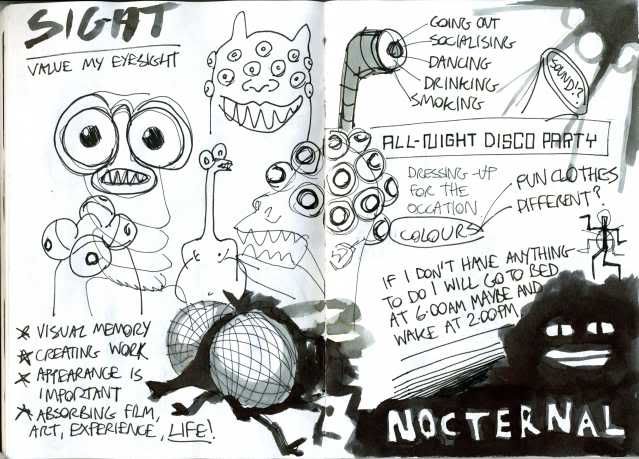 SIGHT
VALUE MY EYESIGHT
VISUAL MEMORY
CREATING WORK
APPEARANCE IS
IMPORTANT
ABSORBING FILM,
ART, EXPERIENCE, LIFE!
GOING OUT
SOCIALISING
DANCING
DRINKING
SMOKING
SOUND!?
ALL-NIGHT DISCO PARTY
DRESSING-UP
FOR THE
OCCATION
COLOURS
FUN CLOTHES
DIFFERENT?
IF I DON'T HAVE ANYTHING
TO DO I WILL GO TO BED
AT 6:00AM MAYBE AND
WAKE AT 2:00PM
NOCTERNAL